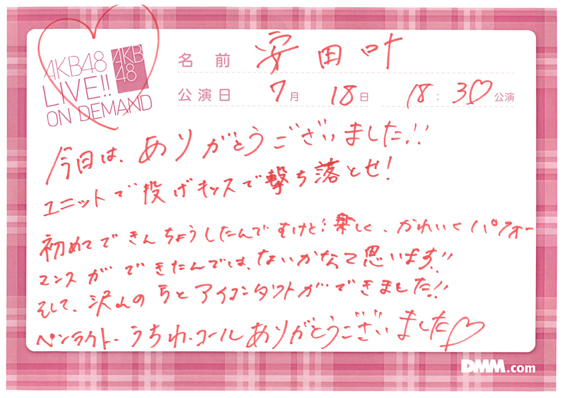 AKB48
LIVE!!
ON DEMAND
AKB
48
名前 安田叶
公演日 7月 18日 18:30♡公演
今日は、ありがとうございました!!
ユニットで投げキッスで撃ち落とせ!
初めてできんちょうしたんですけど!楽しく、かわいくパフォー
マンスができたんでは、ないかなって思います!!
そして、沢山の方とアイコンタクトができました!!
ペンライト・うちわ・コールありがとうございました♡
DMM.com